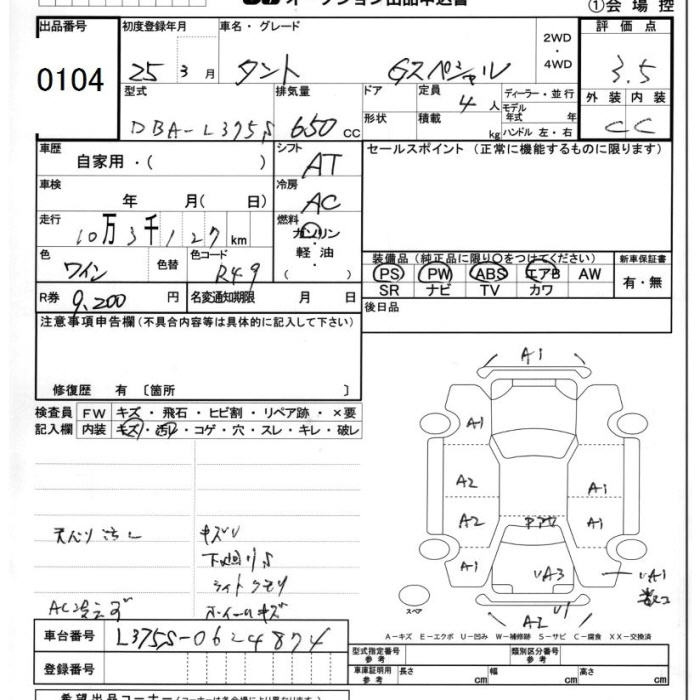 オークション出品申込書
①会場控
出品番号 初度登録年月 車名・グレード 評価点
0104
25 3月 タント Gスペシャル 2WD・4WD 3.5
型式 排気量 ドア 定員 4人 ディーラー・並行 外装 内装
DBA-L375S 650cc 形状 積載 kg モデル年式 年 ハンドル 左・右 C C
車歴 シフト セールスポイント(正常に機能するものに限ります)
自家用・( ) AT
車検 冷房
年 月( 日) AC
走行 燃料
10万3千127km ガソリン・軽油・
装備品(純正品に限り○をつけてください) 新車保証書
色 色替 色コード
ワイン R49
PS PW ABS エアB AW 有・無
SR ナビ TV カワ
R券 9,200円 名変通知期限 月 日
後日品
注意事項申告欄(不具合内容等は具体的に記入して下さい)
修復歴 有 〔箇所 〕
検査員 FW キズ・飛石・ヒビ割・リペア跡・×要
記入欄 内装 キズ・汚レ・コゲ・穴・スレ・キレ・破レ
A1
A1
A2 A1
A2 A1
A1 UA3 UA1
U1
A2
スペア
キズU
下廻りS
ライトクモリ
ホイールキズ
A-キズ E-エクボ U-凹み W-補修跡 S-サビ C-腐食 XX-交換済
車台番号 L375S-0624874
型式指定番号 参考 類別区分番号 参考
登録番号
車庫証明用 参考 長さ cm 幅 cm 高さ cm
希望出品コーナー